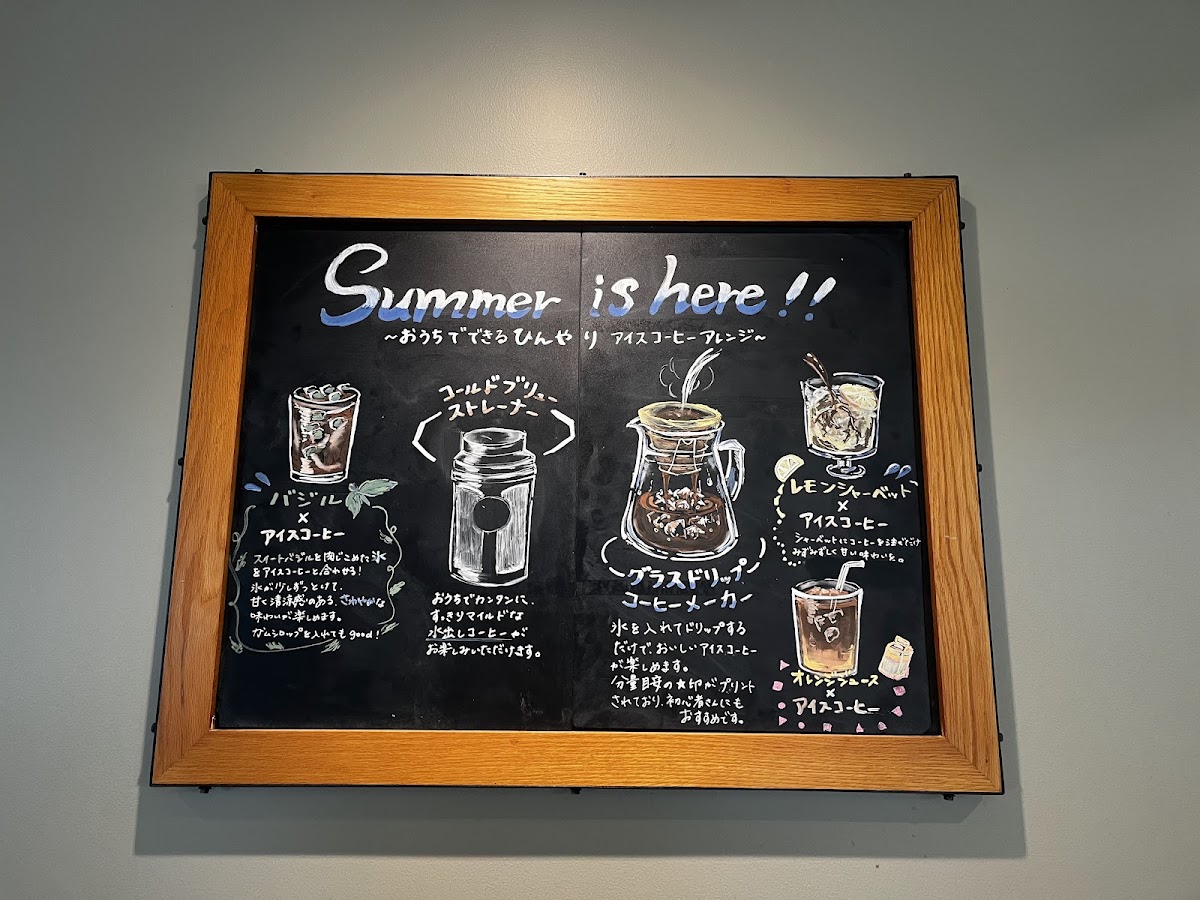 Summer is here!!
~おうちでできるひんやり アイスコーヒーアレンジ~
バジル
×
アイスコーヒー
スイートバジルを閉じこめた氷
をアイスコーヒーと合わせる!
氷が少しずつとけて、
甘く清涼感のある、さわやかな
味わいが楽しめます。
ガムシロップを入れてもgood!
コールドブリュー
ストレーナー
おうちでカンタンに、
すっきりマイルドな
水出しコーヒーが
お楽しみいただけます。
グラスドリップ
コーヒーメーカー
氷を入れてドリップする
だけで、おいしいアイスコーヒー
が楽しめます。
分量目安の☆印がプリント
されており、初心者さんにも
おすすめです。
レモンシャーベット
×
アイスコーヒー
シャーベットにコーヒーを注ぐだけ
みずみずしく甘い味わいに。
オレンジジュース
×
アイスコーヒー